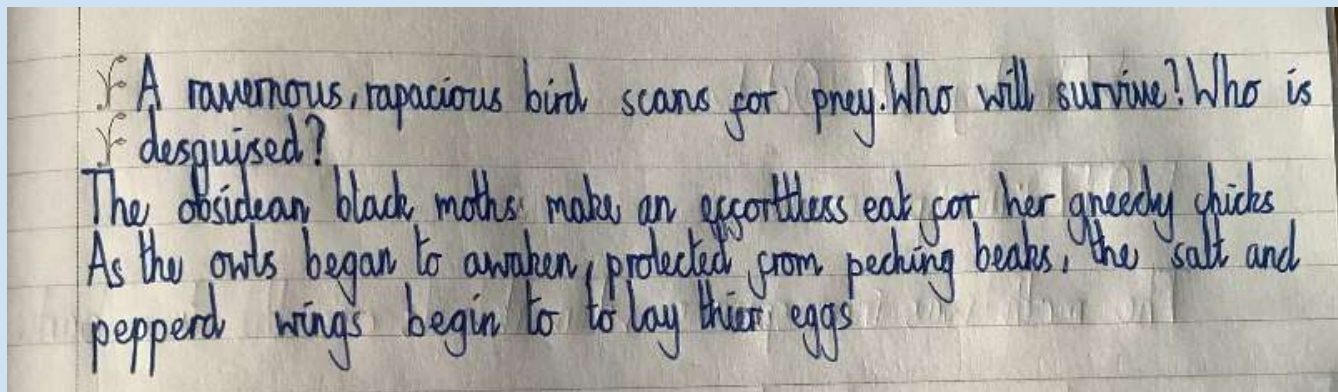 A ravernous, rapacious bird scans for prey. Who will survive? Who is
desguised?
The obsidean black moths make an effortless eat for her greedy chicks
As the owls began to awaken, protected from pecking beaks, the salt and
pepperd wings begin to to lay thier eggs